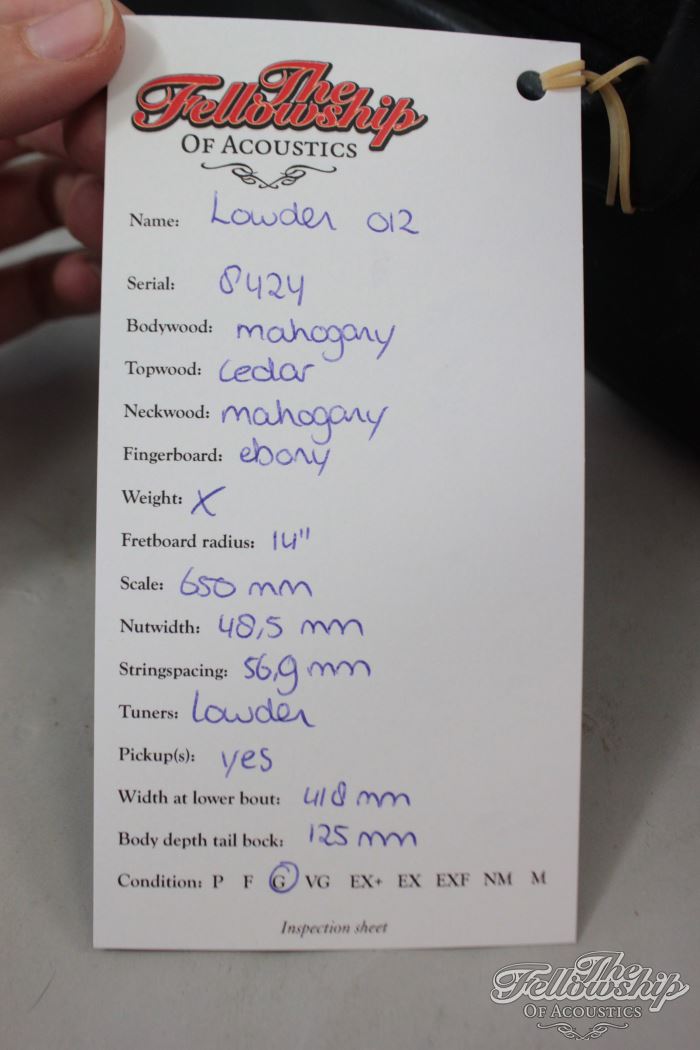 The
Fellowship
OF ACOUSTICS
Name: Lowder 012
Serial: 8424
Bodywood: mahogany
Topwood: cedar
Neckwood: mahogany
Fingerboard: ebony
Weight: X
Fretboard radius: 14"
Scale: 650 mm
Nutwidth: 48,5 mm
Stringspacing: 56,9 mm
Tuners: Lowder
Pickup(s): yes
Width at lower bout: 418 mm
Body depth tail bock: 125 mm
Condition: P F G VG EX+ EX EXF NM M
Inspection sheet
The
Fellowship
OF ACOUSTICS